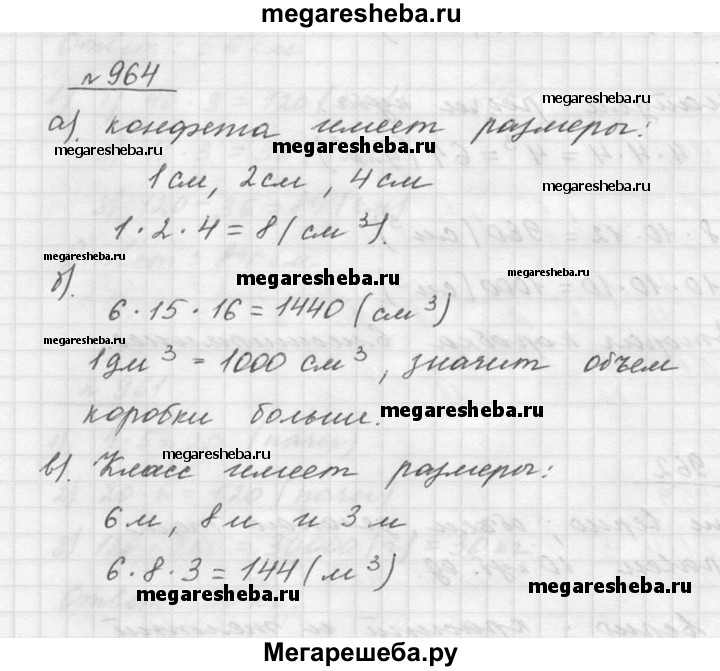 megaresheba.ru
№ 964
megaresheba.ru
а). конфета имеет размеры:
megaresheba.ru megaresheba.ru
1 см, 2 см, 4 см
megaresheba.ru
1 · 2 · 4 = 8 (см³).
megaresheba.ru
megaresheba.ru megaresheba.ru
б).
6 · 15 · 16 = 1440 (см³)
1 дм³ = 1000 см³, значит объем
коробки больше. megaresheba.ru
megaresheba.ru
в). Класс имеет размеры:
megaresheba.ru
6 м, 8 м и 3 м
6 · 8 · 3 = 144 (м³)
megaresheba.ru megaresheba.ru
Мегарешеба.ру